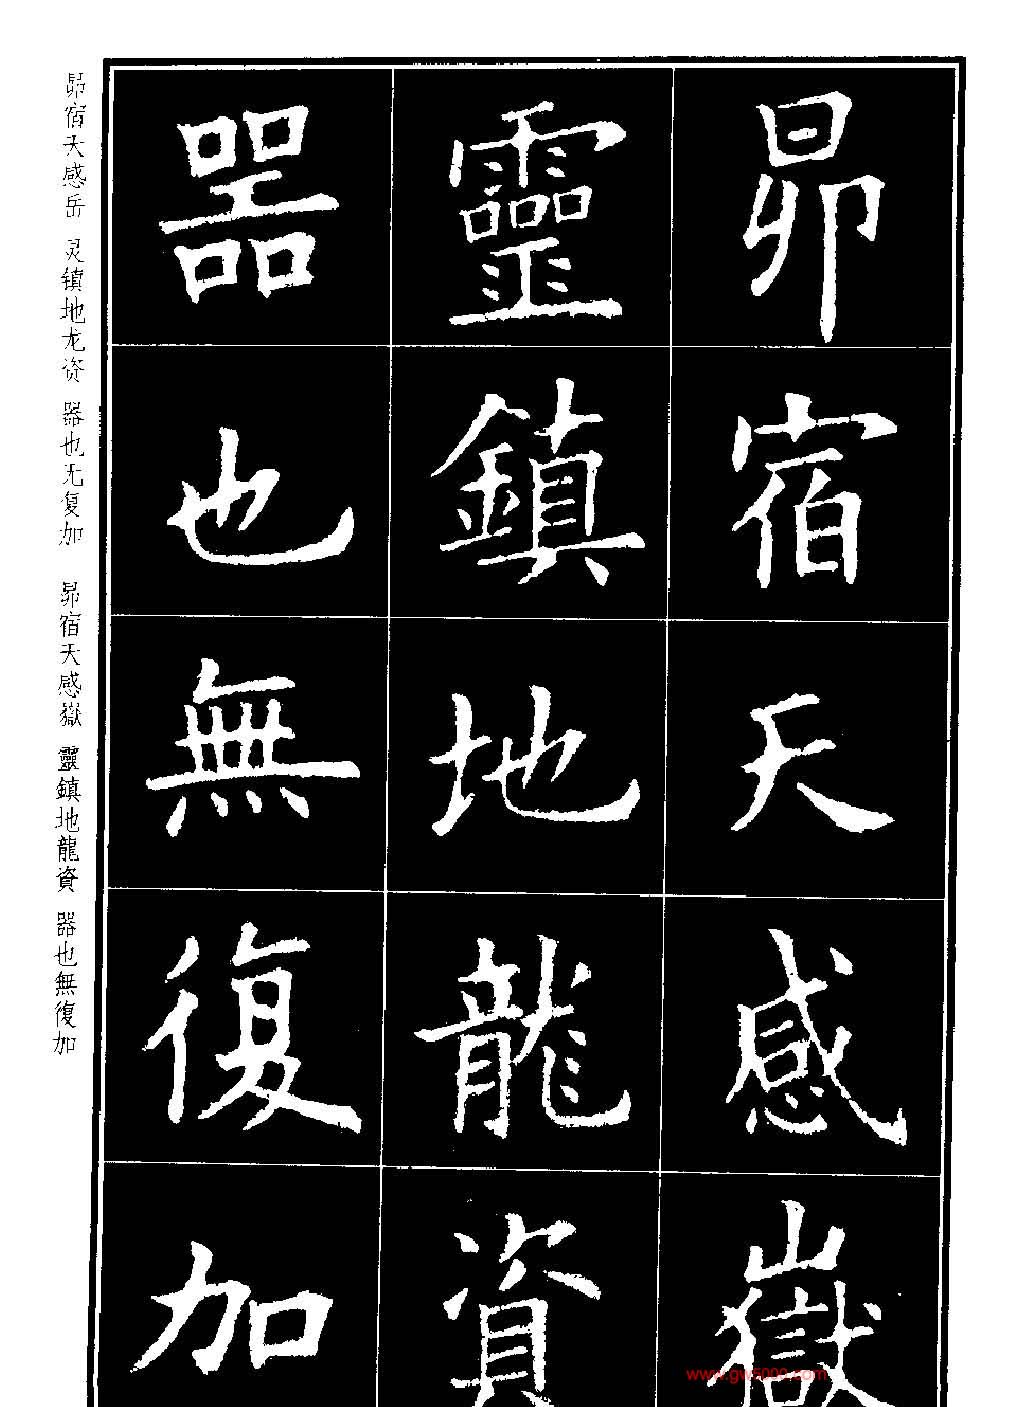 昴宿天感嶽
靈鎮地龍資
器也無復加
昴宿天感岳 灵镇地龙资 器也无复加 昴宿天感嶽 靈鎮地龍資 器也無復加